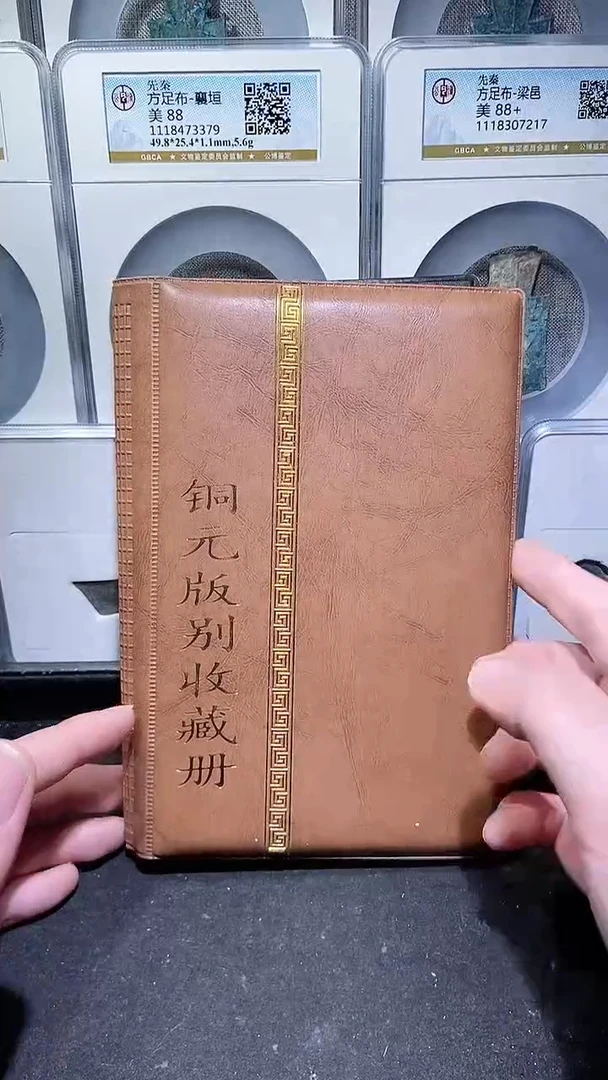 先秦
方足布-襄垣
美 88
1118473379
49.8*25.4*1.1mm,5.6g
GBCA ★ 文物鉴定委员会监制 ★ 公博鉴定
先秦
方足布-梁邑
美 88+
1118307217
GBCA ★ 文物鉴定委员会监制 ★ 公博鉴定
铜元版别收藏册